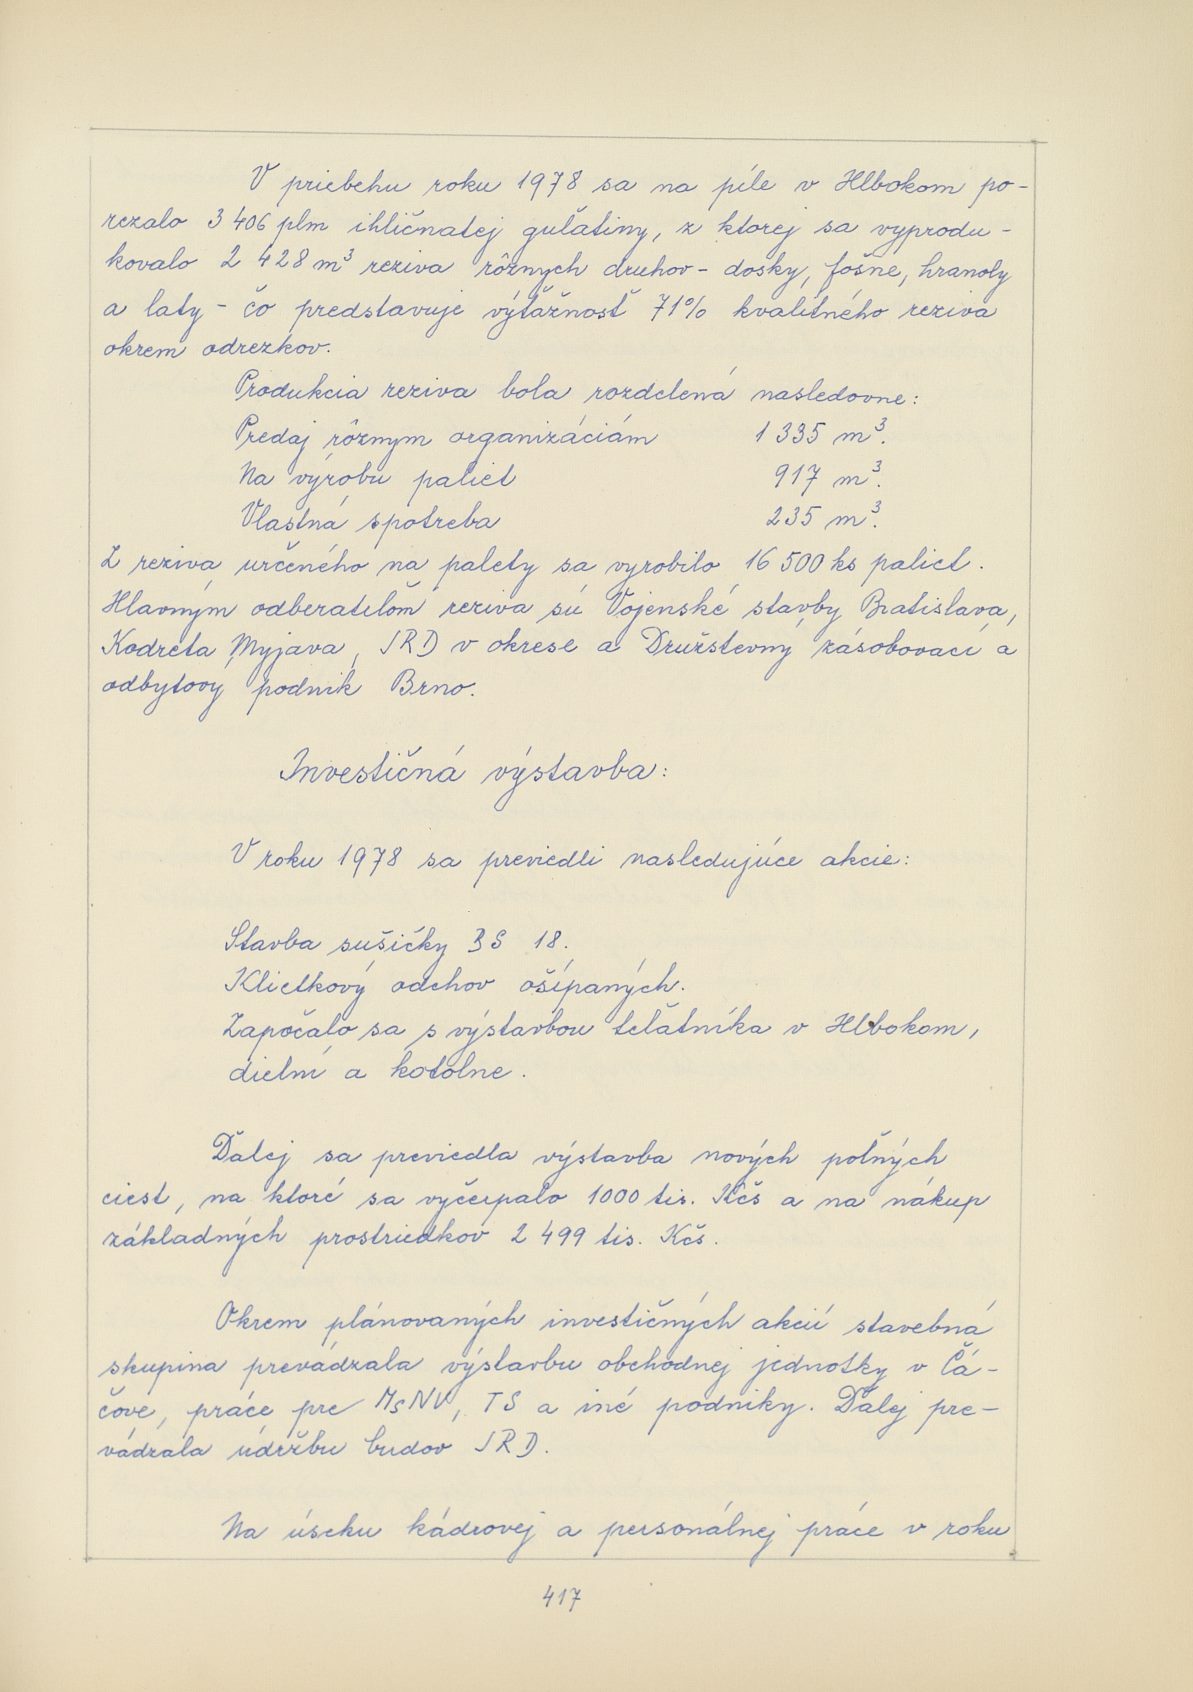 V priebehu roku 1978 sa na píle v Hlbokom po-
rezalo 3 406 plm ihličnatej guľatiny, z ktorej sa vyprodu-
kovalo 2 428 m³ reziva rôznych druhov - dosky, fošne, hranoly
a laty - čo predstavuje výťažnosť 71% kvalitného reziva
okrem odrezkov.
Produkcia reziva bola rozdelená nasledovne:
Predaj rôznym organizáciám 1 335 m³.
Na výrobu paliet 917 m³.
Vlastná spotreba 235 m³.
Z reziva určeného na palety sa vyrobilo 16 500 ks paliet.
Hlavným odberateľom reziva sú Vojenské stavby Bratislava,
Kodreta Myjava, JRD v okrese a Družstevny zásobovací a
odbytovy podnik Brno.
Investičná výstavba:
V roku 1978 sa previedli nasledujúce akcie:
Stavba sušičky BS 18.
Klietkový odchov ošípaných.
Započalo sa s výstavbou teľatníka v Hlbokom,
dielní a kotolne.
Ďalej sa previedla výstavba nových poľných
ciest, na ktoré sa vyčerpalo 1000 tis. Kčs a na nákup
základných prostriedkov 2 499 tis. Kčs.
Okrem plánovaných investičných akcií stavebná
skupina prevádzala výstavbu obchodnej jednotky v Čá-
čove, práce pre MsNV, TS a iné podniky. Ďalej pre-
vádzala údržbu budov JRD.
Na úseku kádrovej a personálnej práce v roku
417